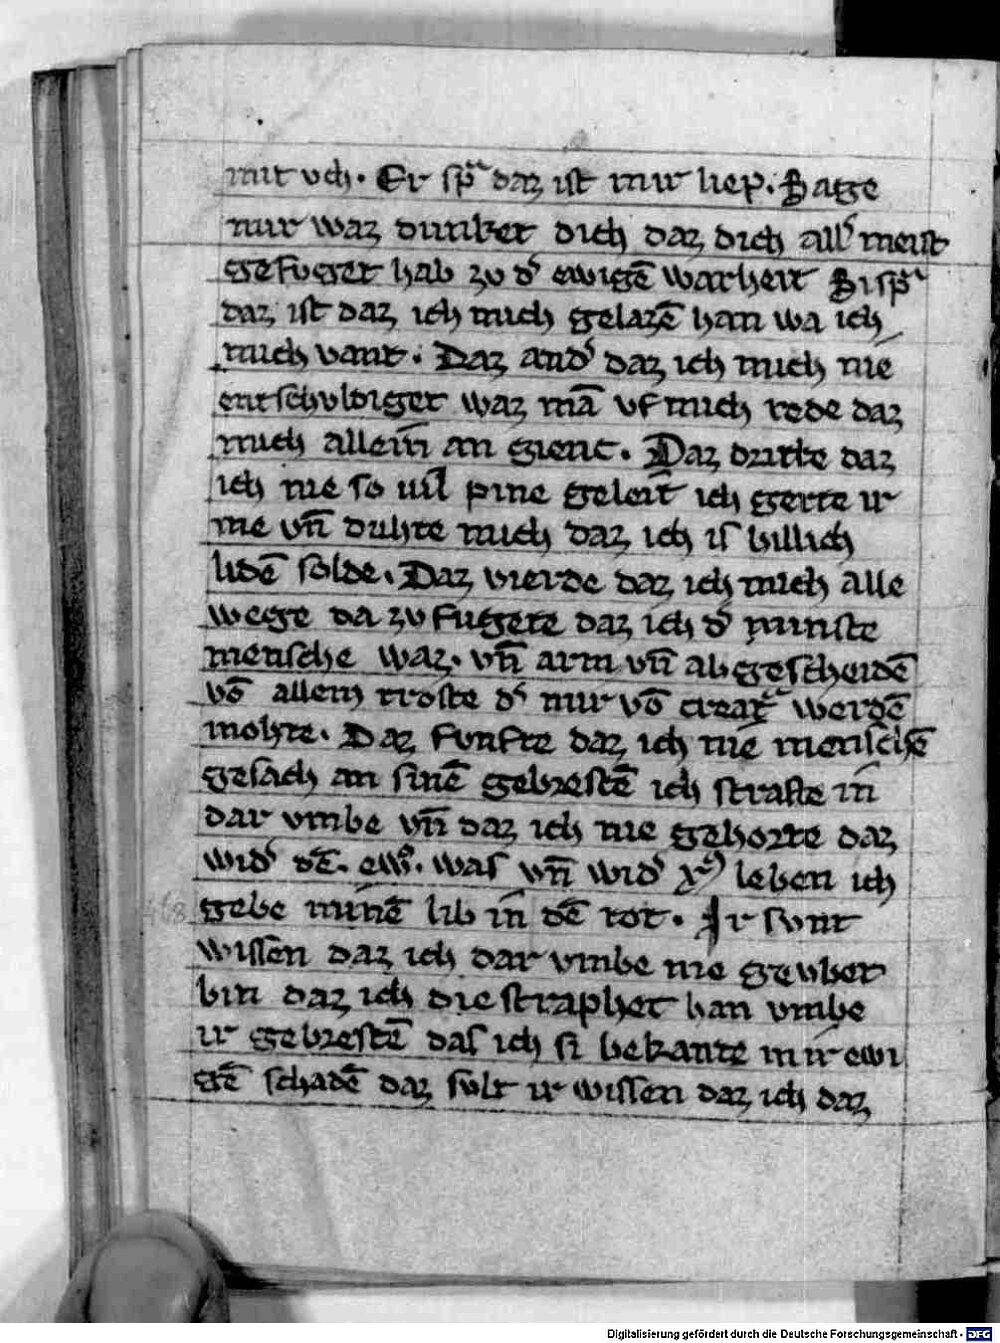 mit vch. Er spͣ daz ist mir liep. Sage
mir waz dunket dich daz dich all᾿ meist
gefuget hab zv d᾿ ewigē warheit Si spͣ
daz ist daz ich mich gelazē han wa ich
mich vant. Daz and᾿ daz ich mich nie
entschvldiget waz mā vf mich rede daz
mich allein an gienc. Daz dritte daz
ich nie so uil pine geleit ich gerte ir
me vn̄ duhte mich daz ich is billich
lidē solde. Daz vierde daz ich mich alle
wege da zv fugete daz ich d᾿ minste
mensche waz. vn̄ arm vn̄ abgescheidē
vō allem troste d᾿ mir vō creatͣ werdē
mohte. Daz funfte daz ich nie menschē
gesach an sinē gebrestē ich strafte in
dar vmbe vn̄ daz ich nie gehorte daz
wid᾿ dē. ew᾿. was vn̄ wid᾿ xp̄i leben ich
gebe minē lib in dē tot. Ir svnt
wissen daz ich dar vmbe nie gevbet
bin daz ich die straphet han vmbe
ir gebrestē das ich si bekante in ir ewi
gē schadē daz svlt ir wissen daz ich daz
Digitalisierung gefördert durch die Deutsche Forschungsgemeinschaft - DFG